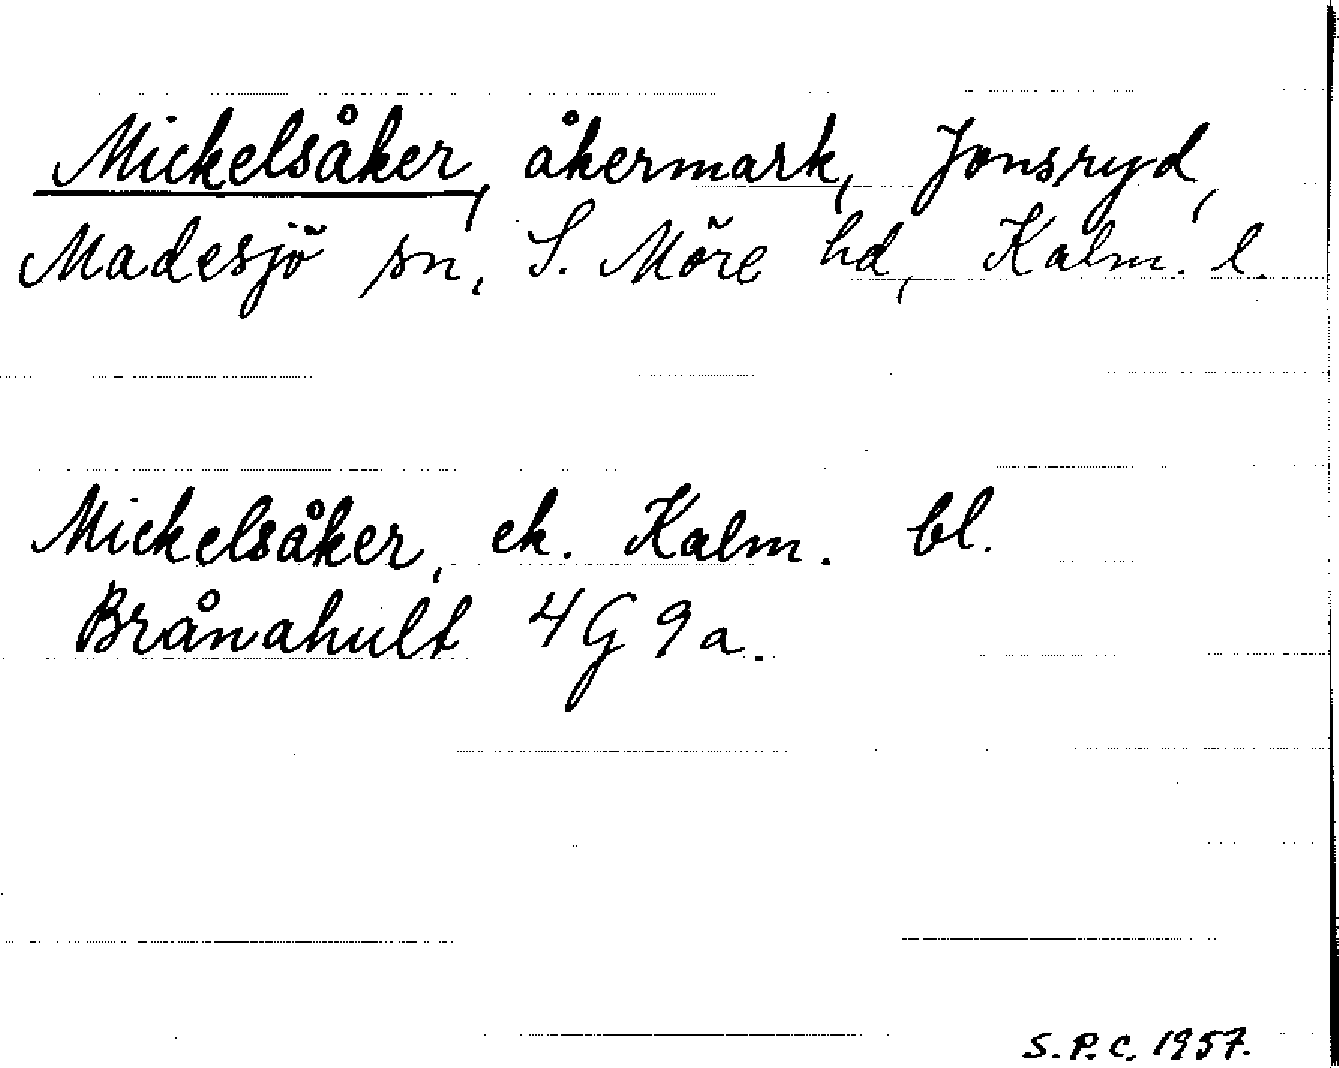 Mickelsåker, åkermark, Jonsryd,
Madesjö sn, S. Möre hd, Kalm. l.
Mickelsåker, ek. Kalm. bl.
Brånahult 4G 9a.
S.P.C. 1957.